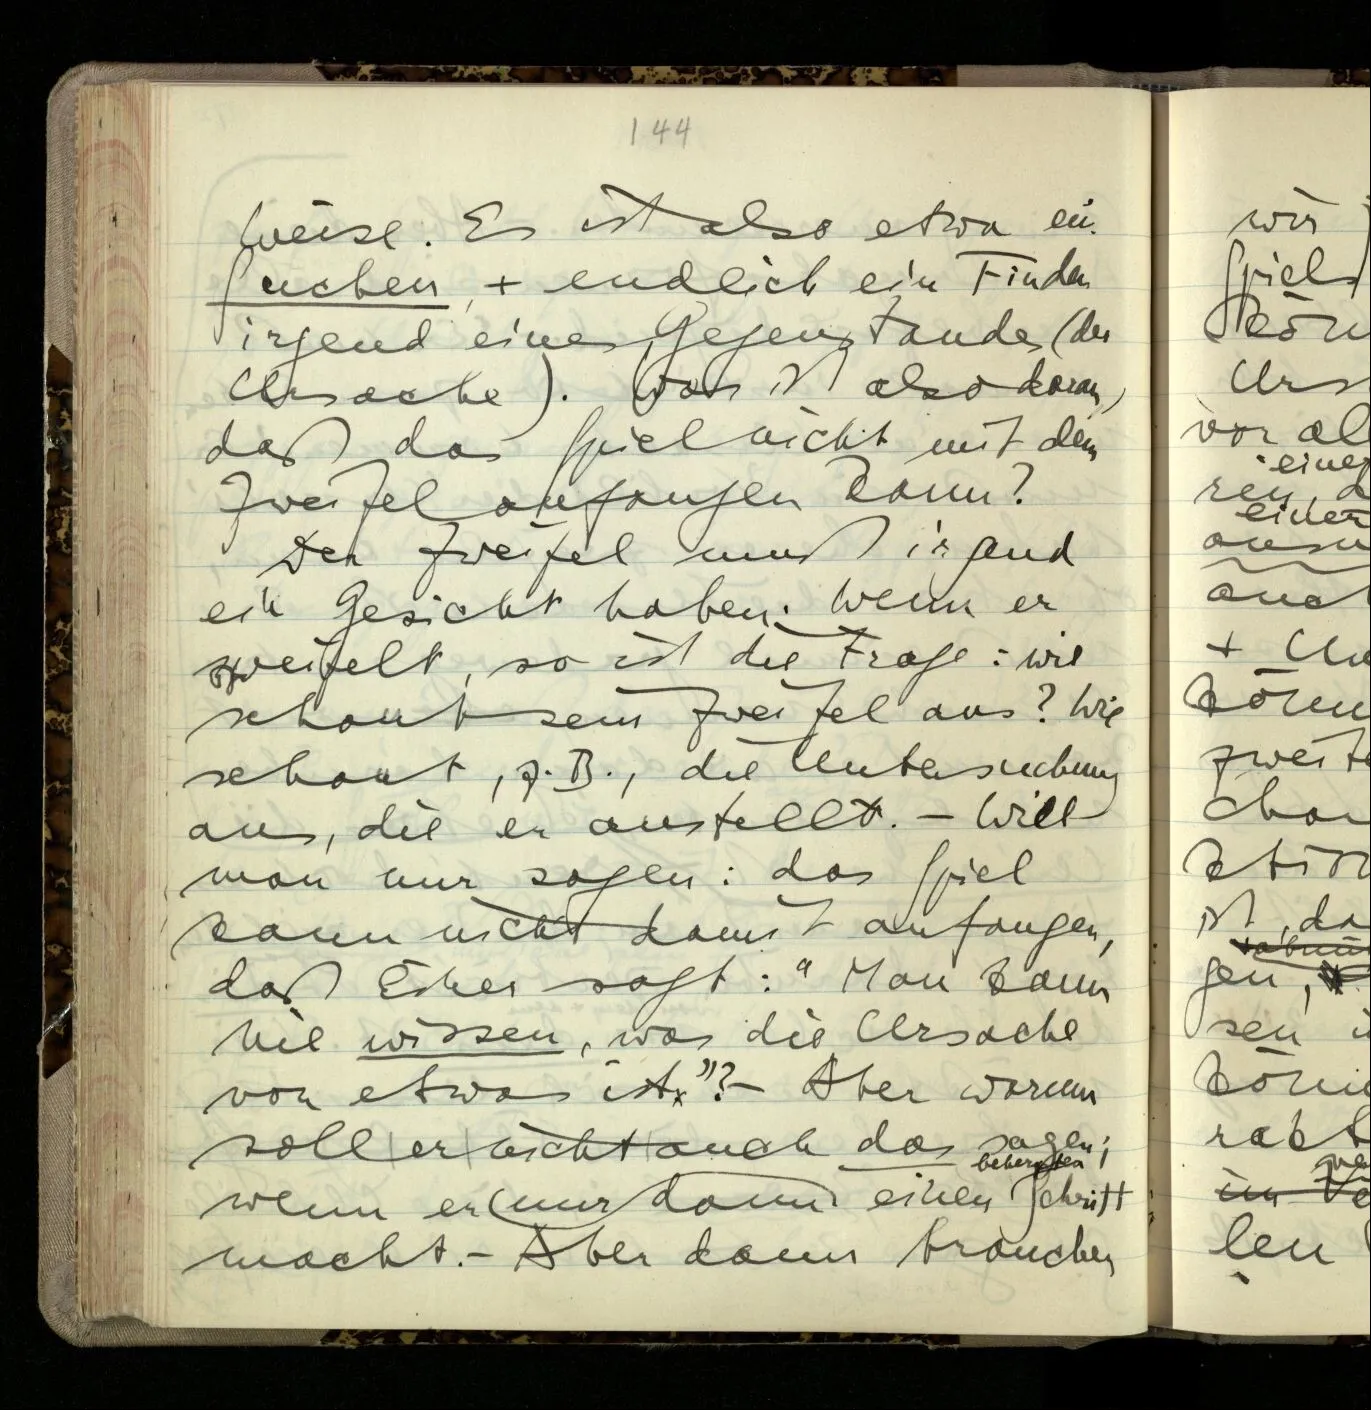 144
Weise. Es ist also etwa ein
Suchen, + endlich ein Finden
irgend eines Gegenstandes (der
Ursache). Was ist also daran,
daß das Spiel nicht mit dem
Zweifel anfangen kann?
Der Zweifel muß irgend
ein Gesicht haben. Wenn er
zweifelt, so ist die Frage: wie
schaut sein Zweifel aus? Wie
schaut, z.B., die Untersuchung
aus, die er anstellt. – Will
man nur sagen: das Spiel
kann nicht damit anfangen,
daß Einer sagt: "Man kann
nie wissen, was die Ursache
von etwas ist."? – Aber warum
soll er nicht auch das sagen;
beherzten
wenn er nur dann einen Schritt
macht. – Aber dann brauchen
wir
Spiel
könn
Urs
vor al
eines
ren, d
einer
auch
+
könn
zweite
ist, da
gen,
sen
len